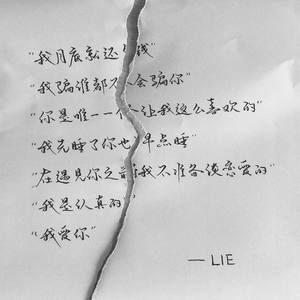 "我月底就还你钱"
"我骗谁都不会骗你"
"你是唯一一个让我这么喜欢的"
"我先睡了你也早点睡"
"在遇见你之前我不准备谈恋爱的"
"我是认真的"
"我爱你"
— LIE